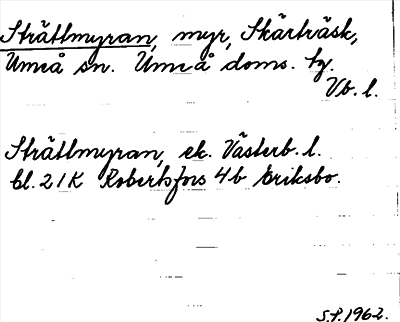 Strättmyran, myr, Skärträsk,
Umeå sn. Umeå doms. tg.
Vb. l.
Strättmyran, ek. Västerb. l.
bl. 21K Robertsfors 4b Eriksbo.
S.P. 1962.